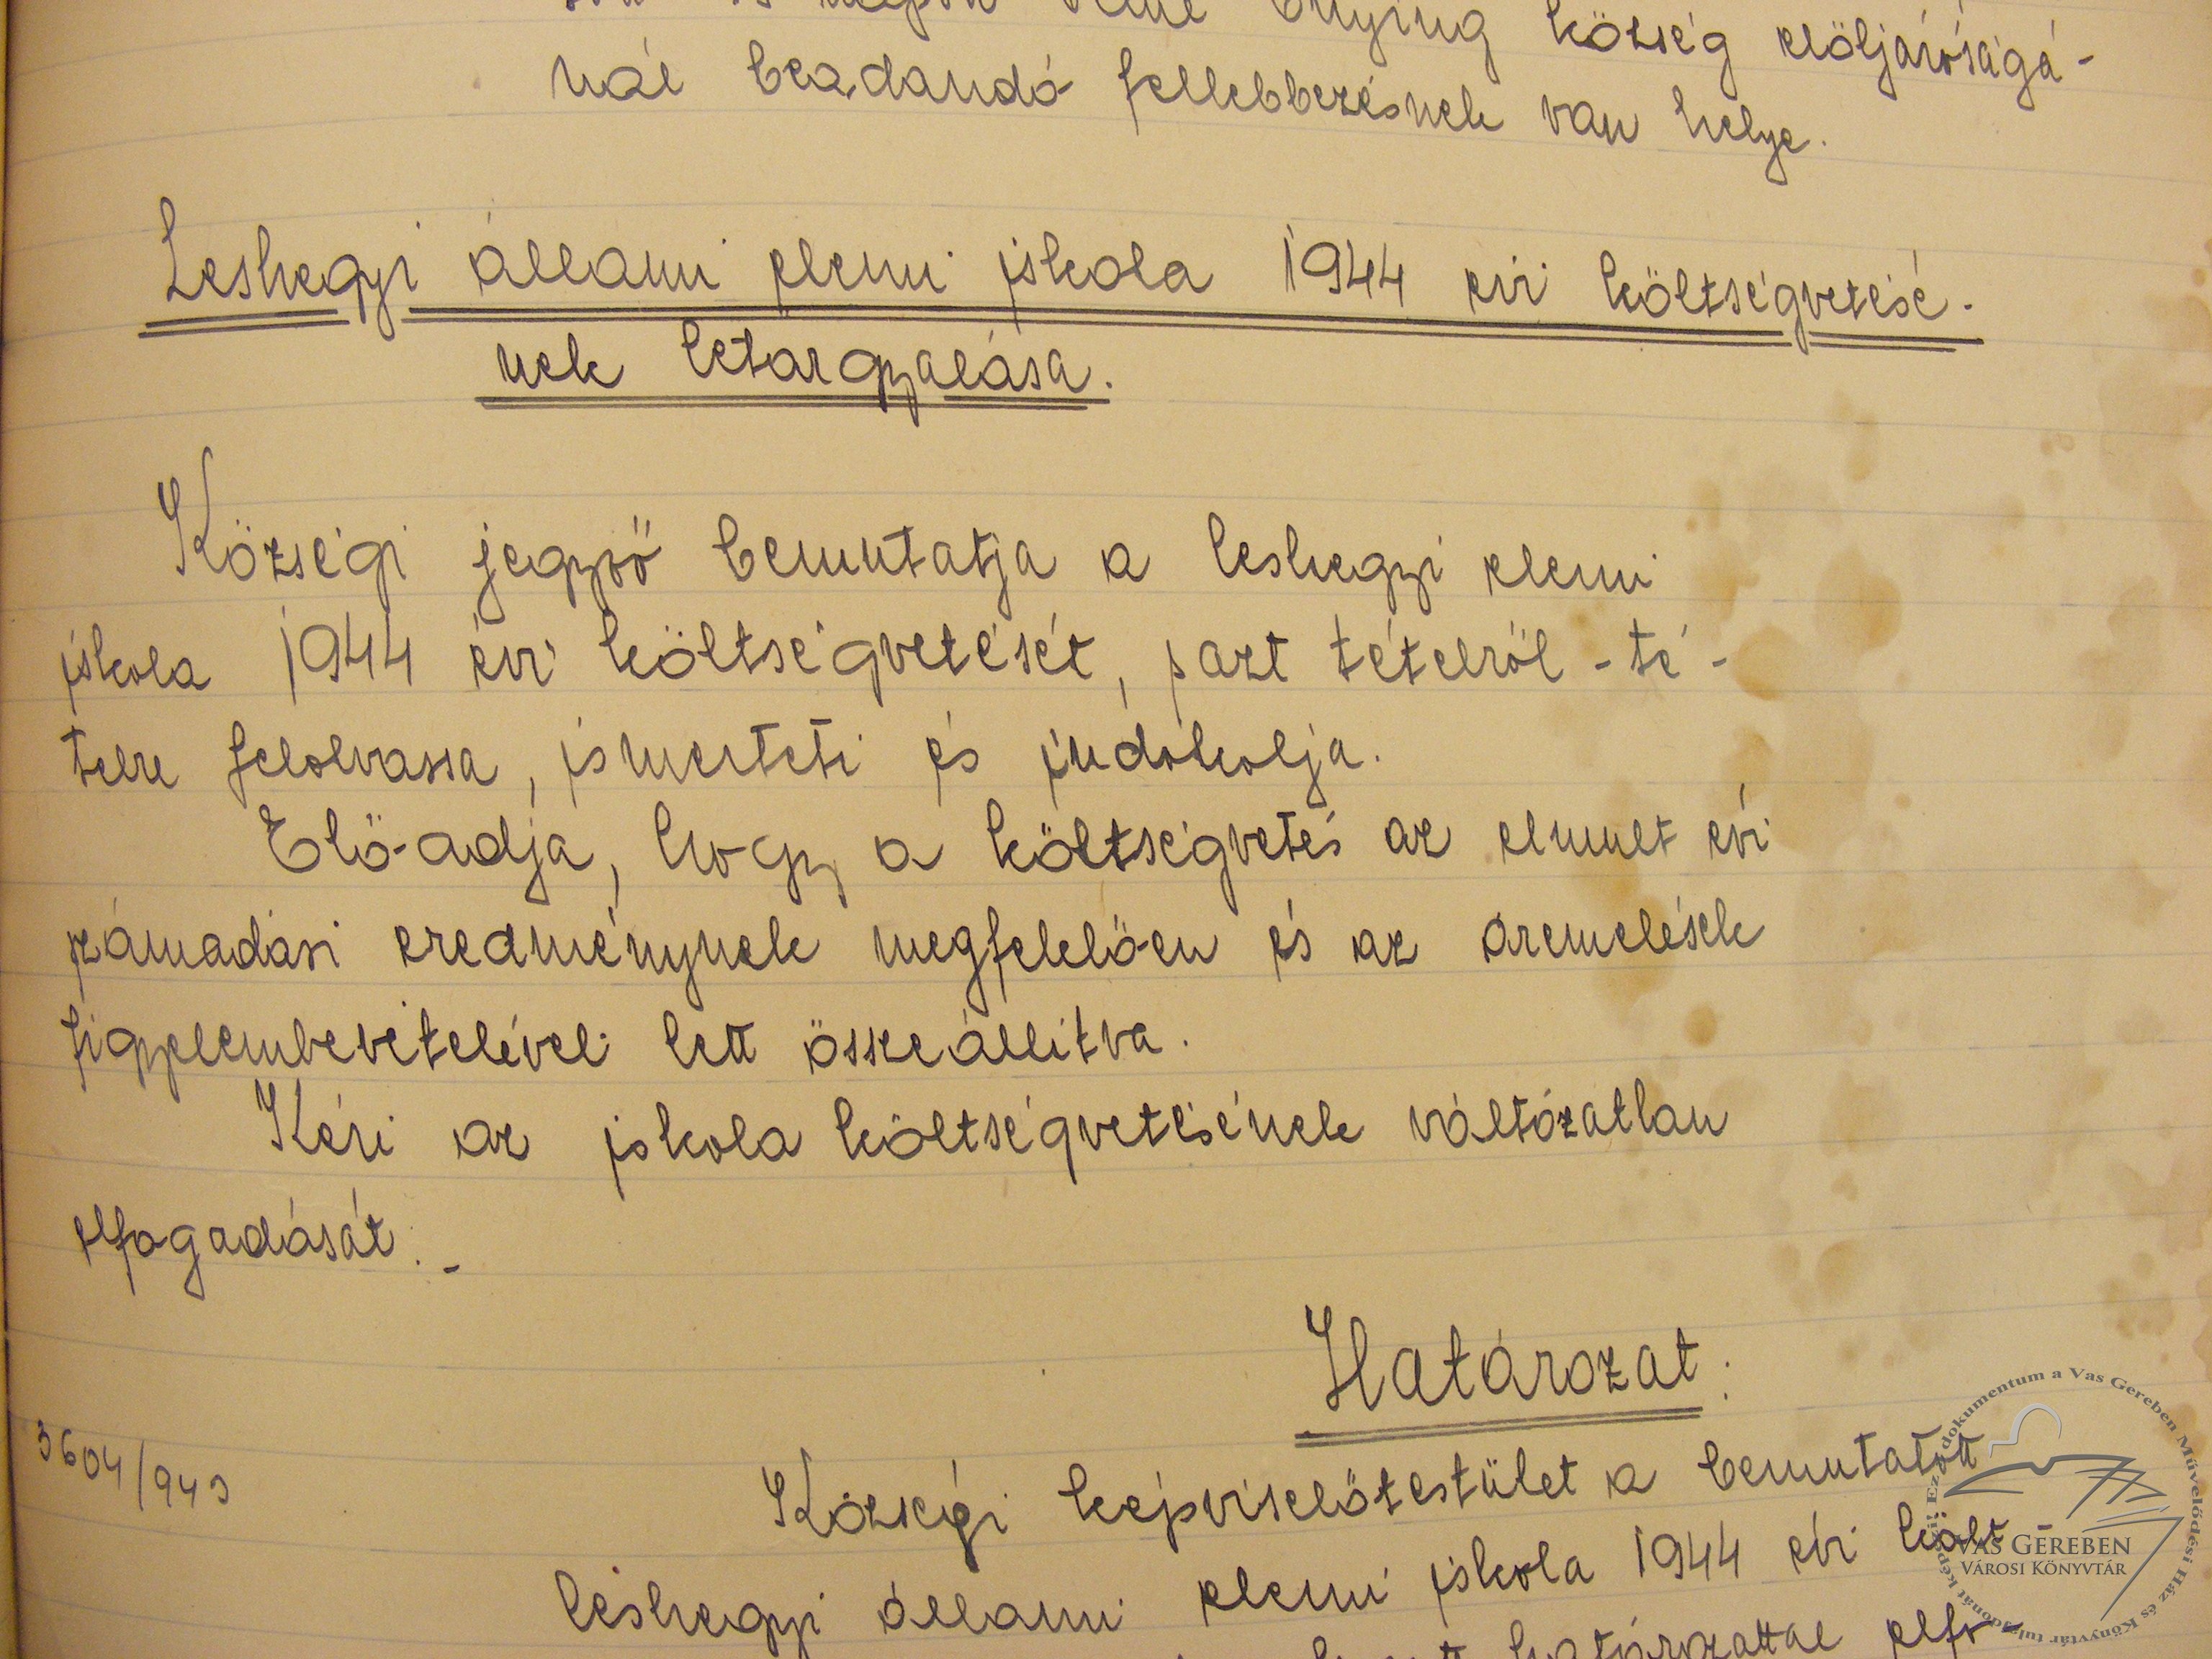 Enying község elöljáróságá-
nál beadandó fellebbezésnek van helye.
Leshegyi állami elemi iskola 1944 évi költségvetésé-
nek letárgyalása.
Községi jegyző bemutatja a leshegyi elemi
iskola 1944 évi költségvetését, s azt tételről-té-
telre felolvassa, ismerteti és indokolja.
Elő-adja, hogy a költségvetés az elmult évi
számadási eredménynek megfelelően és az áremelések
figyelembevételével lett összeállítva.
Kéri az iskola költségvetésének változatlan
elfogadását.-
Határozat:
3604/943
Községi képviselőtestület a bemutatott
leshegyi állami elemi iskola 1944 évi költ-
határozattal elfo-
VAS GEREBEN
VÁROSI KÖNYVTÁR
Ez a dokumentum a Vas Gereben Művelődési Ház és Könyvtár tulajdonát képezi!